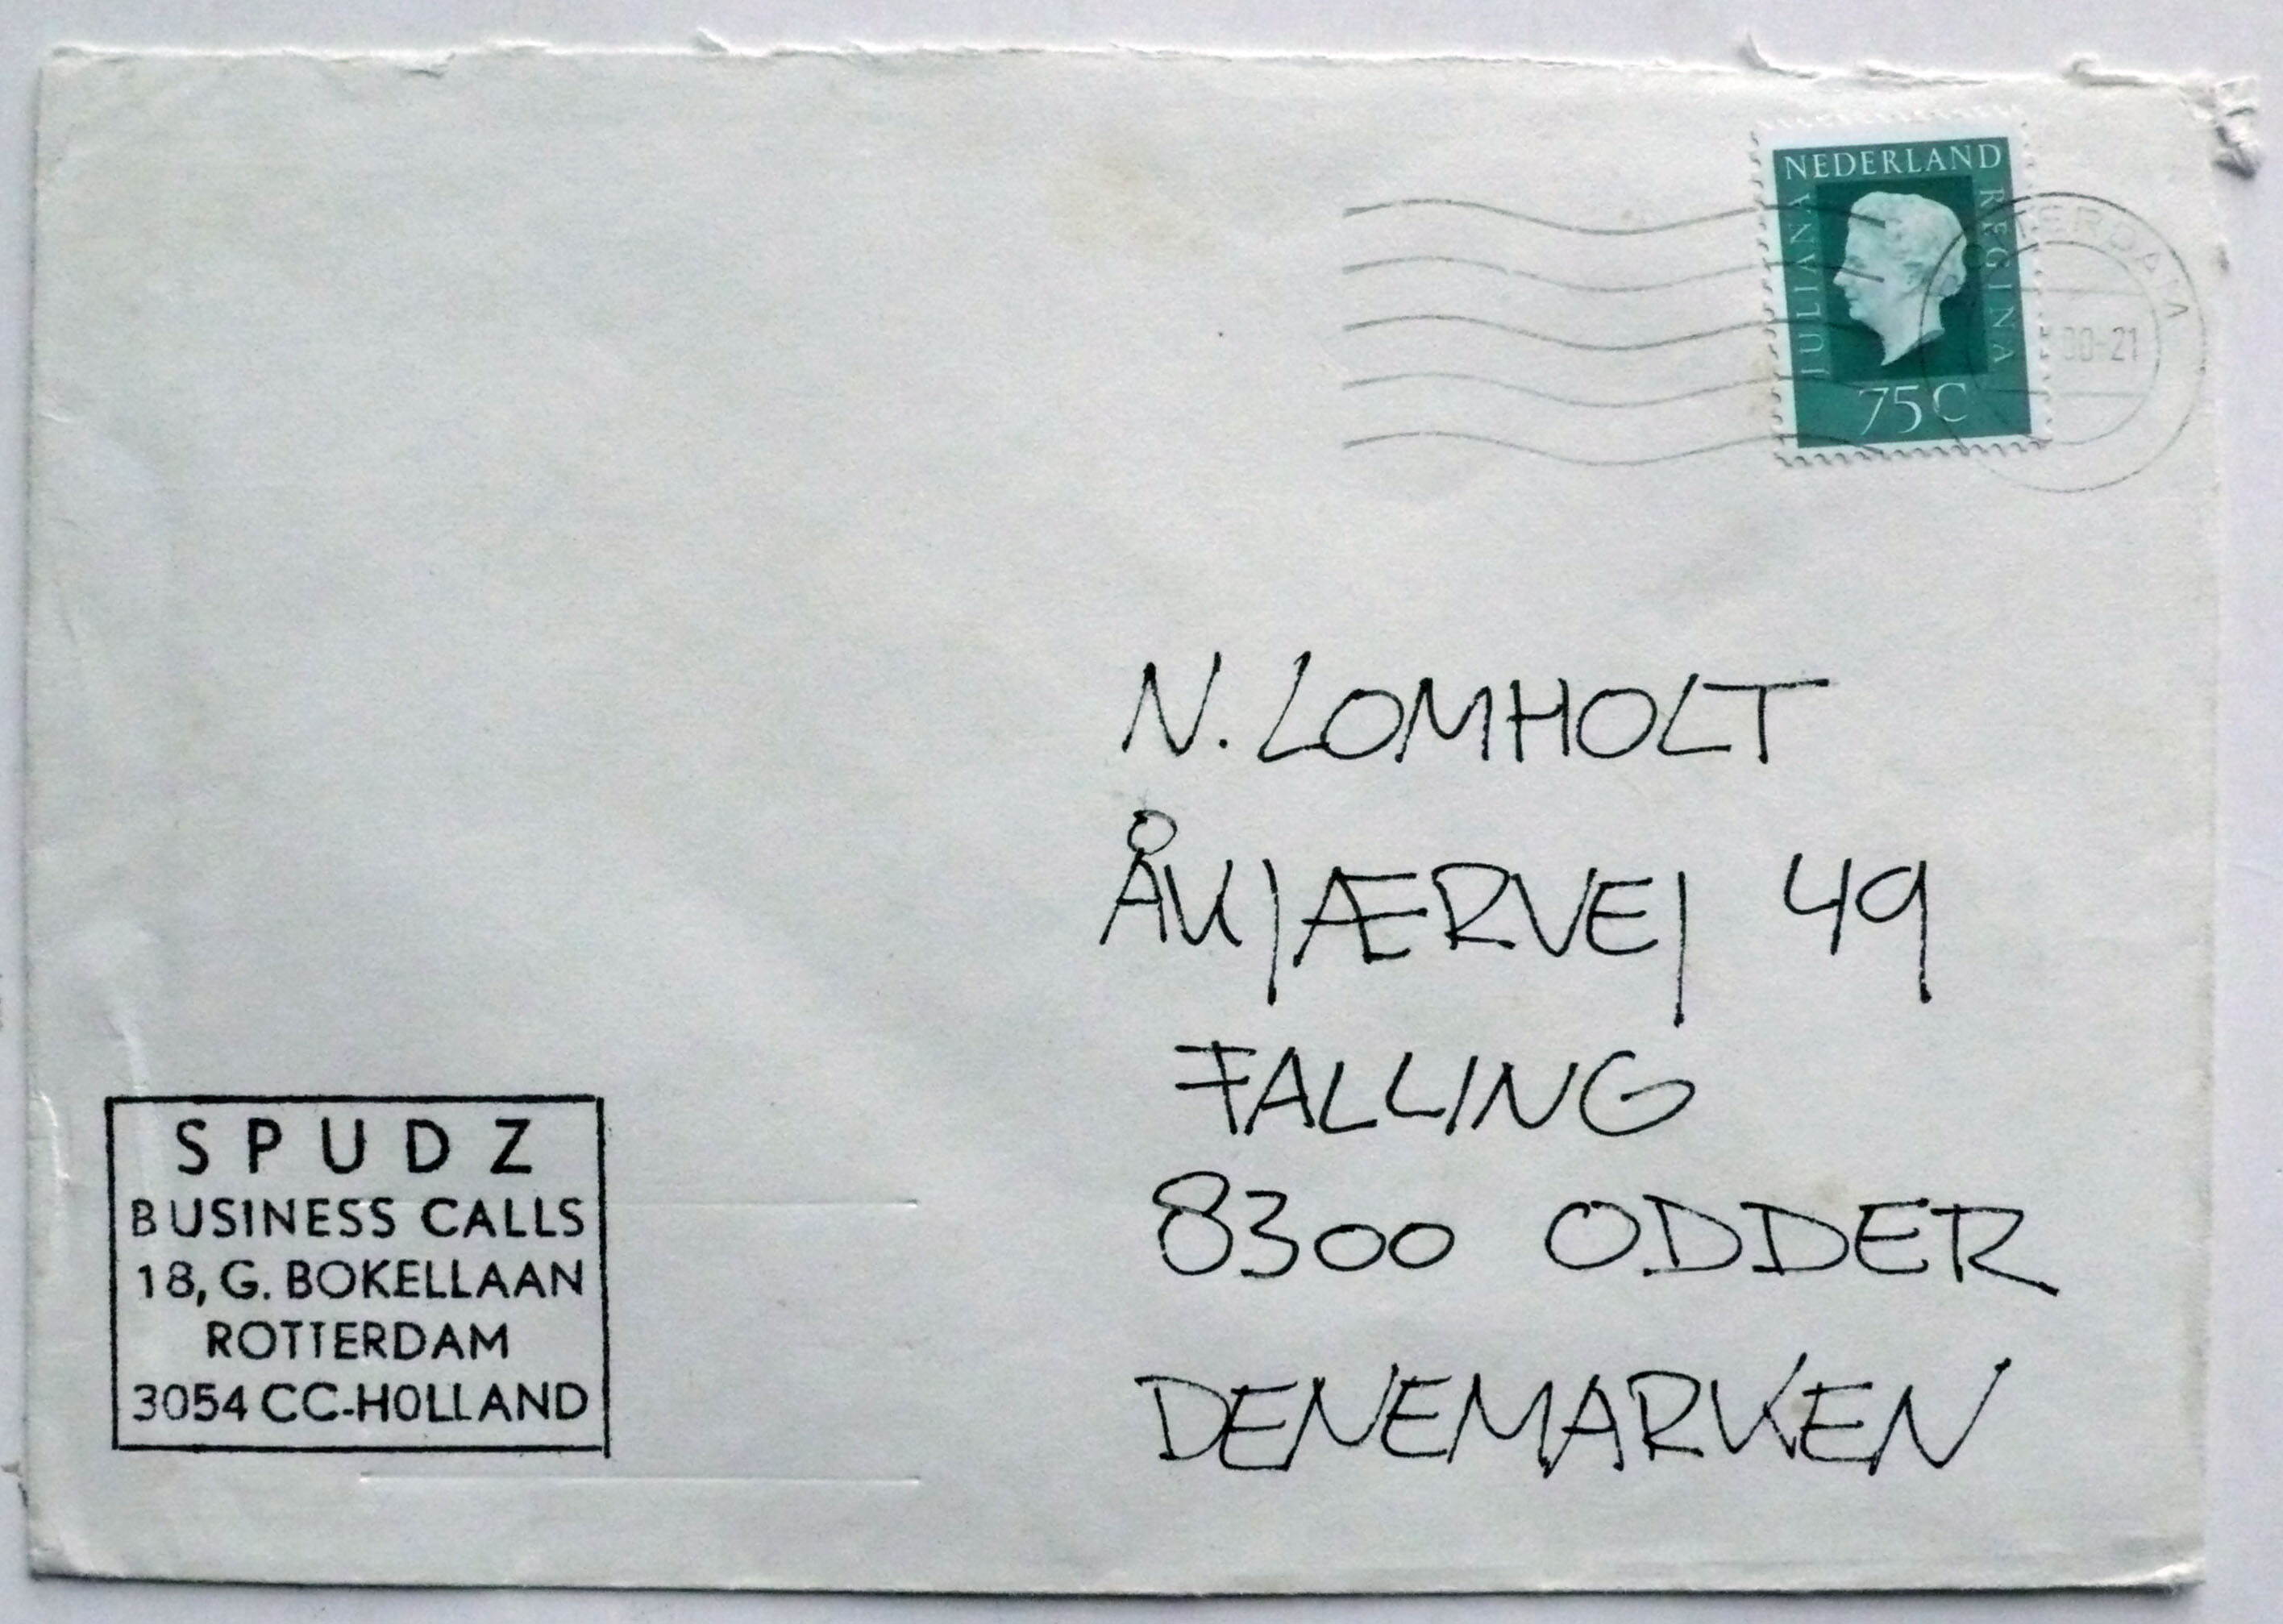 NEDERLAND
JULIANA
REGINA
75C
N. LOMHOLT
ÅKJÆRVEJ 49
FALLING
8300 ODDER
DENEMARKEN
SPUDZ
BUSINESS CALLS
18, G. BOKELLAAN
ROTTERDAM
3054 CC-HOLLAND